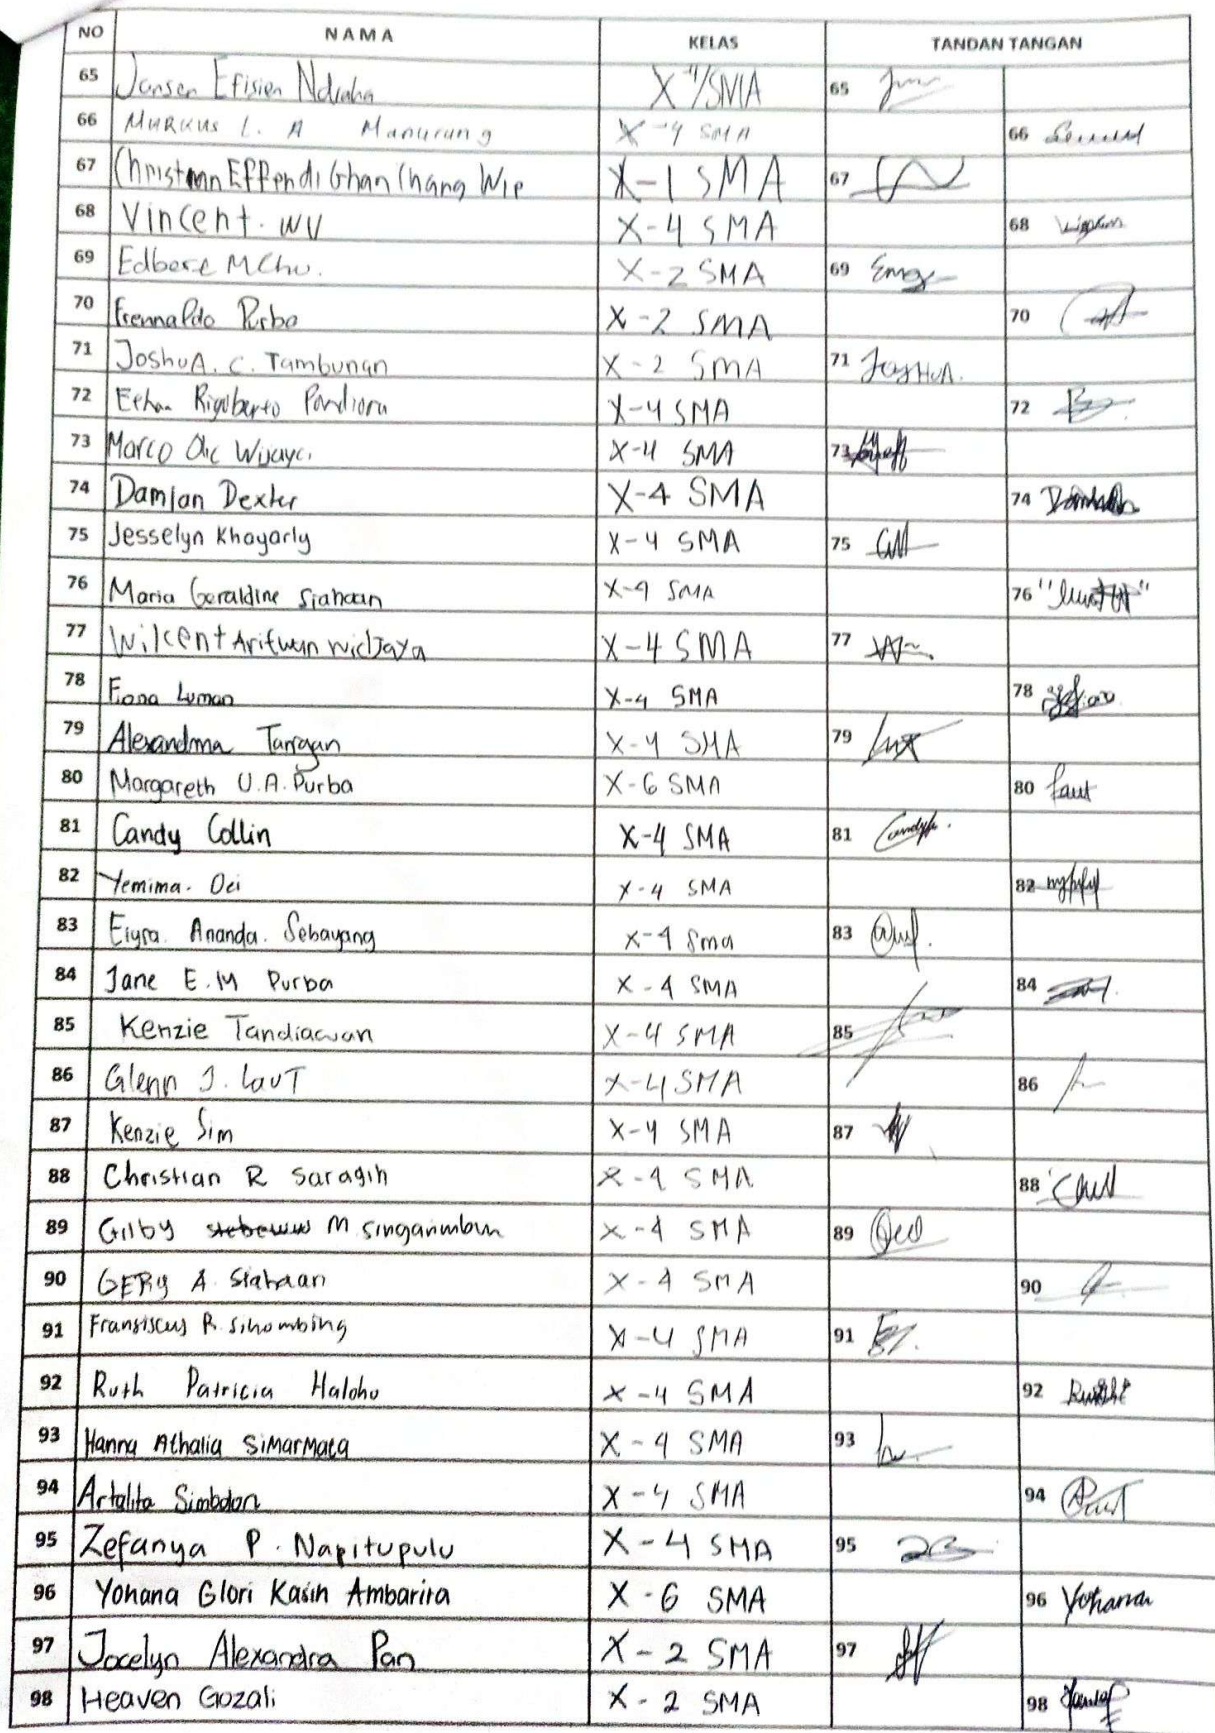 NO NAMA KELAS TANDAN TANGAN
65 Jansen Efisien Ndraha X-4/SMA 65
66 Markus L. A Manurung X-4 SMA 66
67 Christman Effendi Ghan Chang Wie X-1 SMA 67
68 Vincent. WU X-4 SMA 68
69 Edbert MChu. X-2 SMA 69
70 Frennaldo Purba X-2 SMA 70
71 JoshuA. C. Tambunan X-2 SMA 71 JosHUA.
72 Ethan Rigoberto Pandiora X-4 SMA 72
73 Marco Wijaya X-4 SMA 73
74 Damian Dexter X-4 SMA 74
75 Jesselyn Khoyarly X-4 SMA 75
76 Maria Geraldine Siahaan X-4 SMA 76
77 Wilcent Arifwyn Widjaya X-4 SMA 77
78 Fiona Luman X-4 SMA 78
79 Tarigan X-4 SMA 79
80 Margareth U.A. Purba X-6 SMA 80
81 Candy Collin X-4 SMA 81
82 Yemima. Oei X-4 SMA 82
83 Eiyra. Ananda. Sebayang X-4 Sma 83
84 Jane E.M Purba X-4 SMA 84
85 Kenzie Tandiawan X-4 SMA 85
86 Glenn J. LauT X-4 SMA 86
87 Kenzie Sim X-4 SMA 87
88 Christian R Saragih X-4 SMA 88
89 Gilby M. Singarimbun X-4 SMA 89
90 GERY A. Siahaan X-4 SMA 90
91 Fransiscus R. Sihombing X-4 SMA 91
92 Ruth Patricia Haloho X-4 SMA 92
93 Hanna Athalia SiMarMata X-4 SMA 93
94 Artalita Simbolon X-4 SMA 94
95 Zefanya P. Napitupulu X-4 SMA 95
96 Yohana Glori Kasih Ambarita X-6 SMA 96 Yohana
97 Jocelyn Alexandra Pan X-2 SMA 97
98 Heaven Gozali X-2 SMA 98